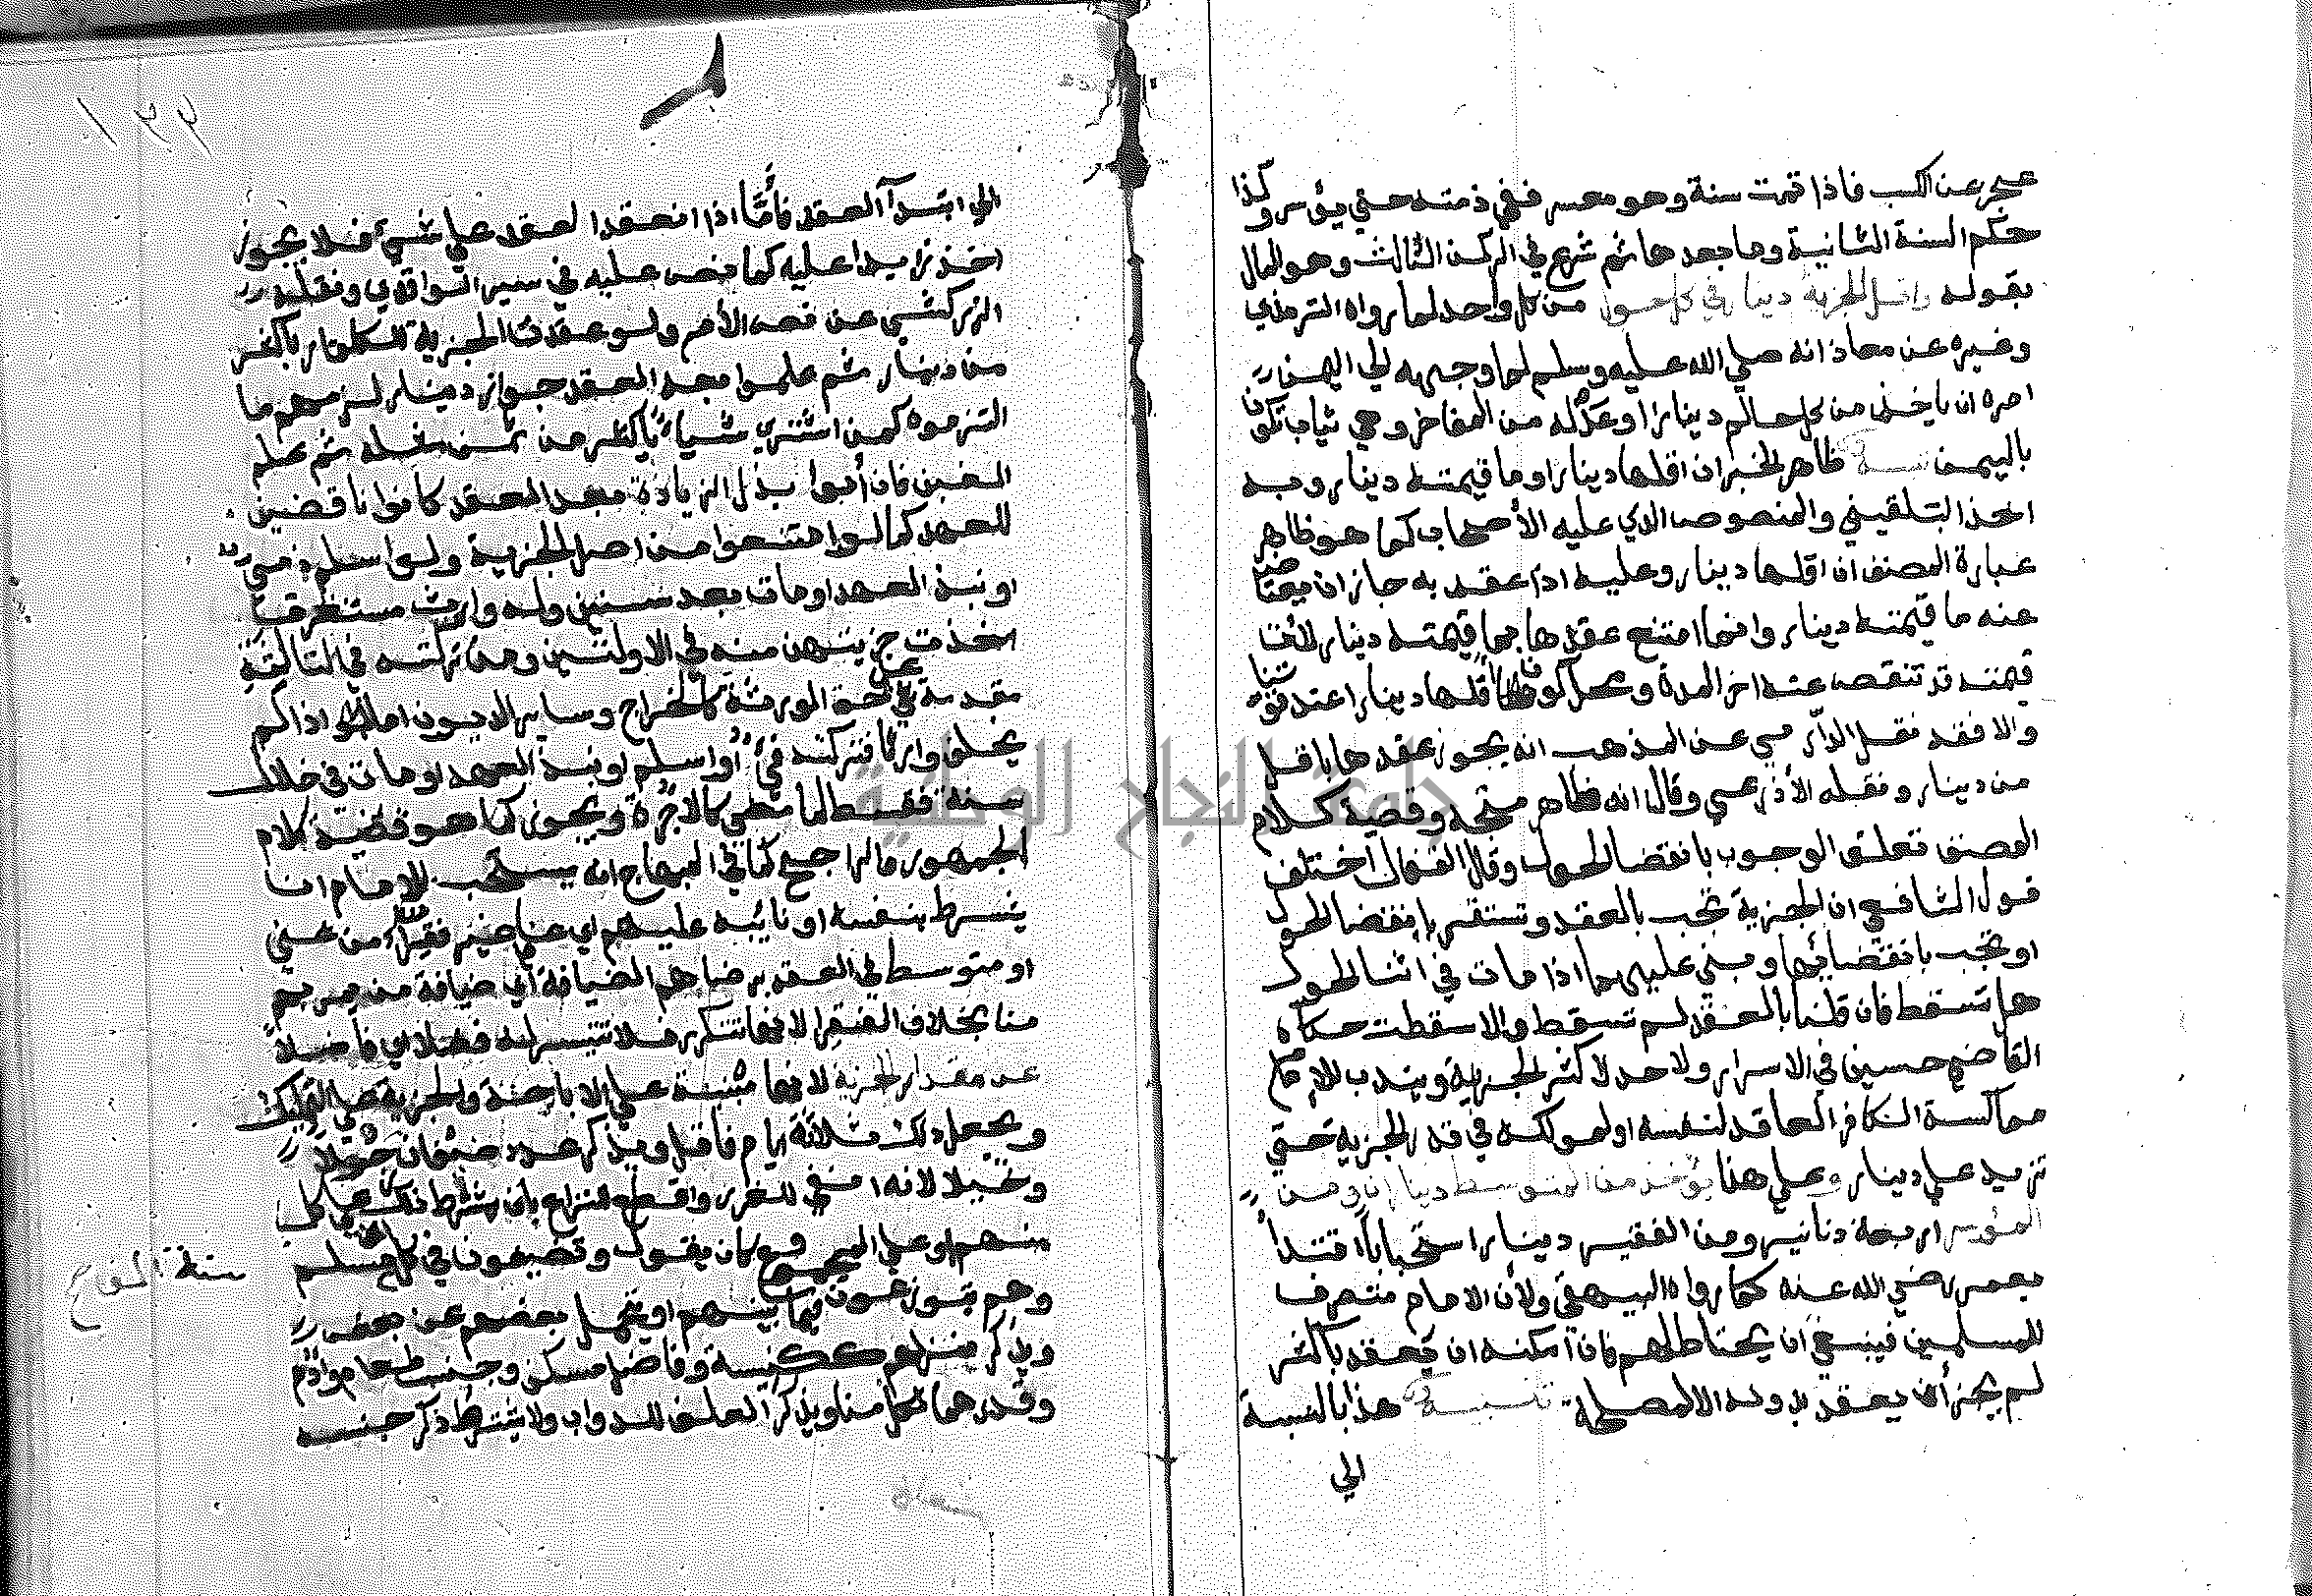 عجز عن الكسب فاذا تمت سنة وهو معسر ففي ذمته حتي يؤسر وكذا
حكم السنة الثانية وما بعدها ثم شرع في الركن الثالث وهو المال
بقوله واقل الجزية دينار في كل حول من كل واحد لما رواه الترمذي
وغيره عن معاذ انه صلي الله عليه وسلم لما وجهه الي اليمن
امره ان ياخذ من كل حالم دينارا او عدله من المعافر وهي ثياب تكون
باليمن تنبيه ظاهر الخبر ان اقلها دينار او ما قيمته دينار وبه
اخذ البلقيني والمنصوص الذي عليه الأصحاب كما هو ظاهر
عبارة المصنف ان اقلها دينار وعليه اذا عقد به جاز ان يعتاض
عنه ما قيمته دينار وانما امتنع عقدها بما قيمته دينار لأن
قيمته قد تنقص عنه اخر المدة ومحل كون اقلها دينارا عند قوتنا
والا فقد نقل الدارمي عن المذهب انه يجوز عقدها باقل
من دينار ونقله الأذرعي وقال انه ظاهر متجه وقضية كلام
المصنف تعلق الوجوب بانقضا الحول وقال القفال اختلف
قول الشافعي ان الجزية تجب بالعقد وتستقر بانقضا الحول
او تجب بانقضايها وبني عليهما اذا مات في اثنا الحول
هل تسقط فان قلنا بالعقد لم تسقط والا سقطت حكاه
القاضي حسين في الاسرار ولا حد لاكثر الجزية ويندب للامام
مماكسة الكافر العاقد لنفسه او لموكله في قدر الجزية حتي
تزيد علي دينار وعلي هذا يؤخذ من المتوسط ديناران ومن
الموسر اربعة دنانير ومن الفقير دينارا استحبابا اقتدا
بعمر رضي الله عنه كما رواه البيهقي ولأن الامام متصرف
للمسلمين فينبغي ان يحتاط لهم فان امكنه ان يعقد باكثر
لم يجز أن يعقد بدونه الا لمصلحة تنبيه هذا بالنسبة
الي
١٢٢
الي ابتدآ العقد فأما اذا انعقد العقد علي شيء فلا يجوز
اخذ زايد عليه كما نص عليه في سير الواقدي ونقله
الزركشي عن نص الأم ولو عقدت الجزية للكفار باكثر
من دينار ثم علموا بعد العقد جواز دينار لزمهم ما
التزموه كمن اشتري شيا باكثر من ثمن مثله ثم علم
الغبن فان أبوا بذل الزيادة بعد العقد كانوا ناقضين
للعهد كما لو امتنعوا من اصل الجزية ولو اسلم ذمي
او نبذ العهد او مات بعد سنين وله وارث مستغرق
اخذت جزيتهن منه في الاولتين ومن تركته في الثالثة
مقدمة علي حق الورثة كالخراج وساير الديون اما اذا لم
يخلف وارثا فتركته فيء او اسلم او نبذ العهد او مات في خلال
سنة فقسط لما مضي كالاجرة ويجوز كما هو قضية كلام
الجمهور والراجح كما في المنهاج انه يستحب للامام ان
يشرط بنفسه او نائبه عليهم اي علي غير فقير من غني
او متوسط في العقد برضاهم الضيافة أي ضيافة من يمر بهم
منا بخلاف الفقير لانها تتكرر فلا تتيسر له فضلا اي فاضلا
عن مقدار الجزية لانها مبنية علي الاباحة والجزية علي التمليك
ويجعل ذلك ثلاثة ايام فاقل ويذكر عدد ضيفان رجلا
وخيلا لانه انفي للغرر واقطع للنزاع بان يشرط ذلك علي كل
منهم او علي المجموع كان يقول وتضيفون في كل سنة الف مسلم
وهم يتوزعون فيما بينهم او يتحمل بعضهم عن بعض
ويذكر منزلهم ككنيسة وفاضل مسكن وجنس طعام وأدم
وقدرهما لكل منا ويذكر العلف للدواب ولا يشترط ذكر جنسه